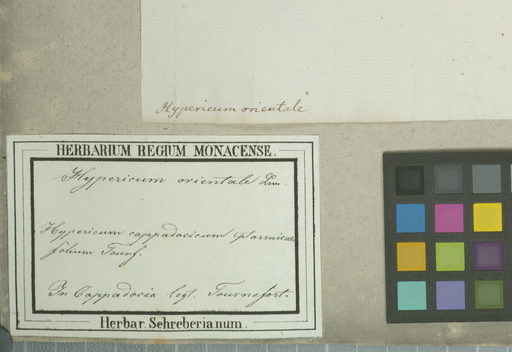 Hypericum orientale
HERBARIUM REGIUM MONACENSE.
Hypericum orientale Lin.
Hypericum cappadocicum ptarmicae
folium Tourf.
In Cappadocia legt. Tournefort.
Herbar. Schreberianum.